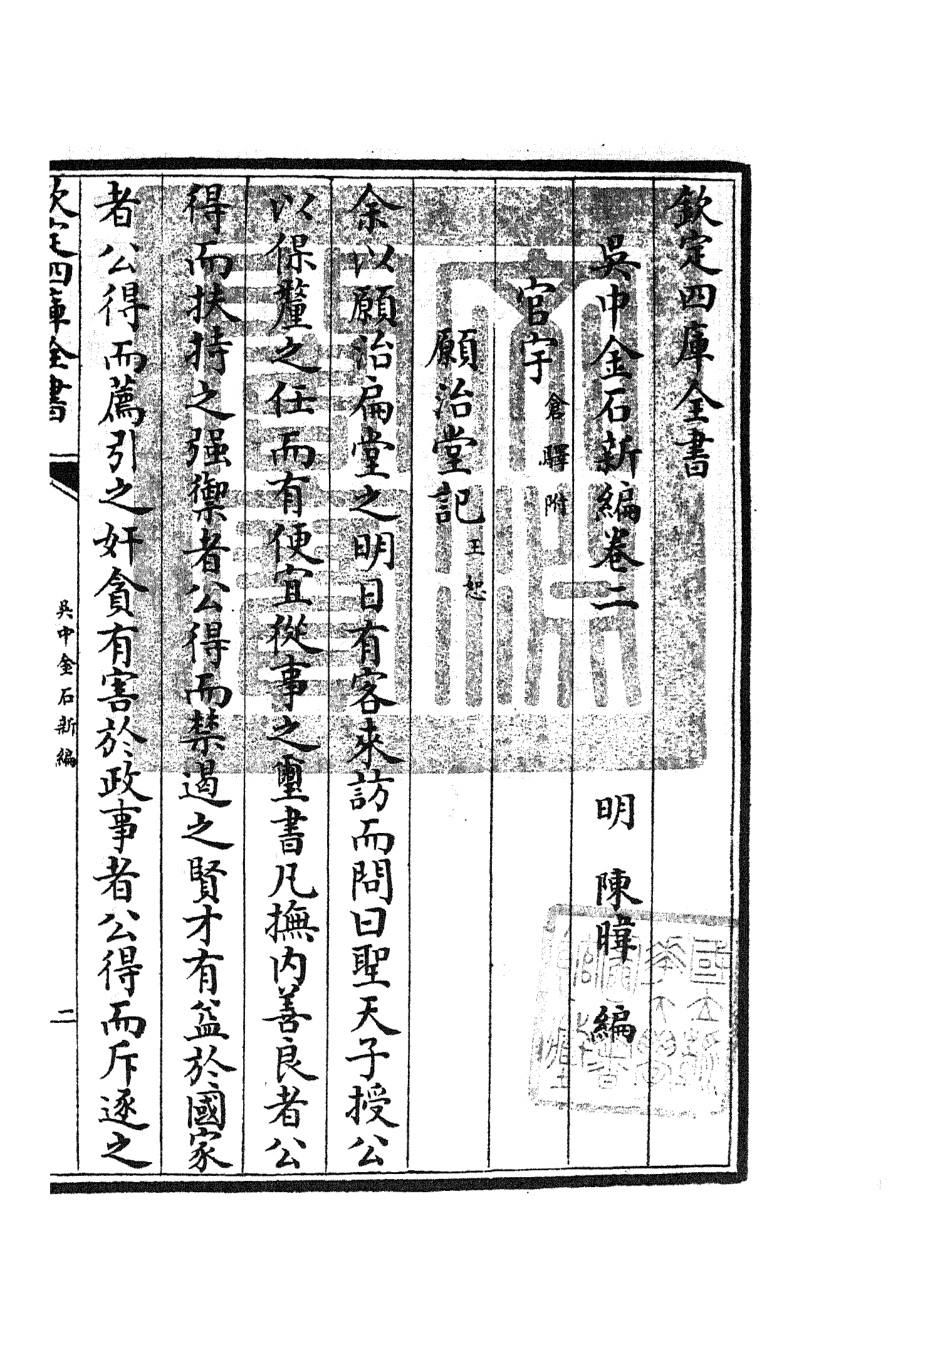 欽定四庫全書
吳中金石新編卷二
明 陳暐 編
官宇 倉驛附
願治堂記 王恕
余以願治扁堂之明日有客來訪而問曰聖天子授公
以保釐之任而有便宜從事之璽書凡撫内善良者公
得而扶持之强禦者公得而禁遏之賢才有益於國家
者公得而薦引之奸貪有害於政事者公得而斥逐之
欽定四庫全書
吳中金石新編
二